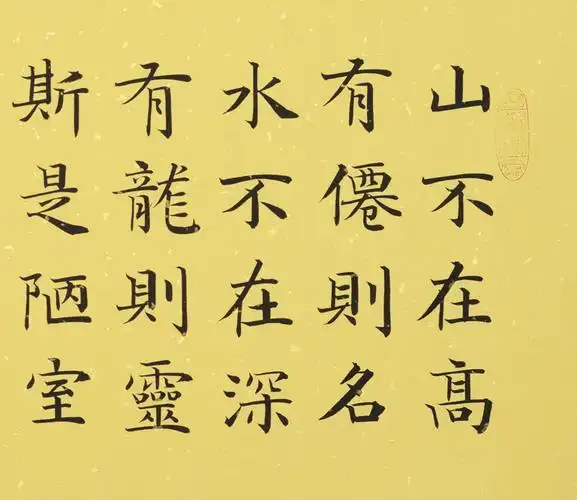 山不在髙
有僊則名
水不在深
有龍則靈
斯是陋室